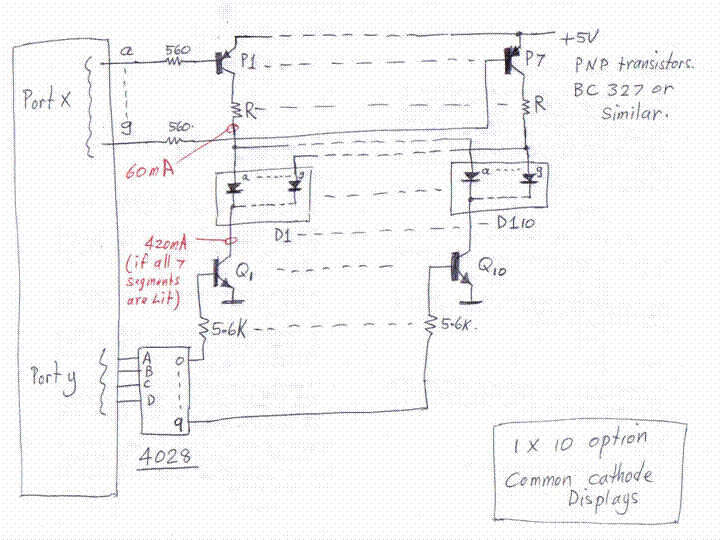 +5V
a
560
P1
P7
PNP transistors.
BC 327 or
Similar.
Port x
R
R
g
560
60mA
a
g
a
g
D1
D10
420mA
(if all 7
segments
are Lit)
Q1
Q10
5.6K
5.6K.
Port y
A
B
C
D
0
9
4028
1 x 10 option
Common cathode
Displays